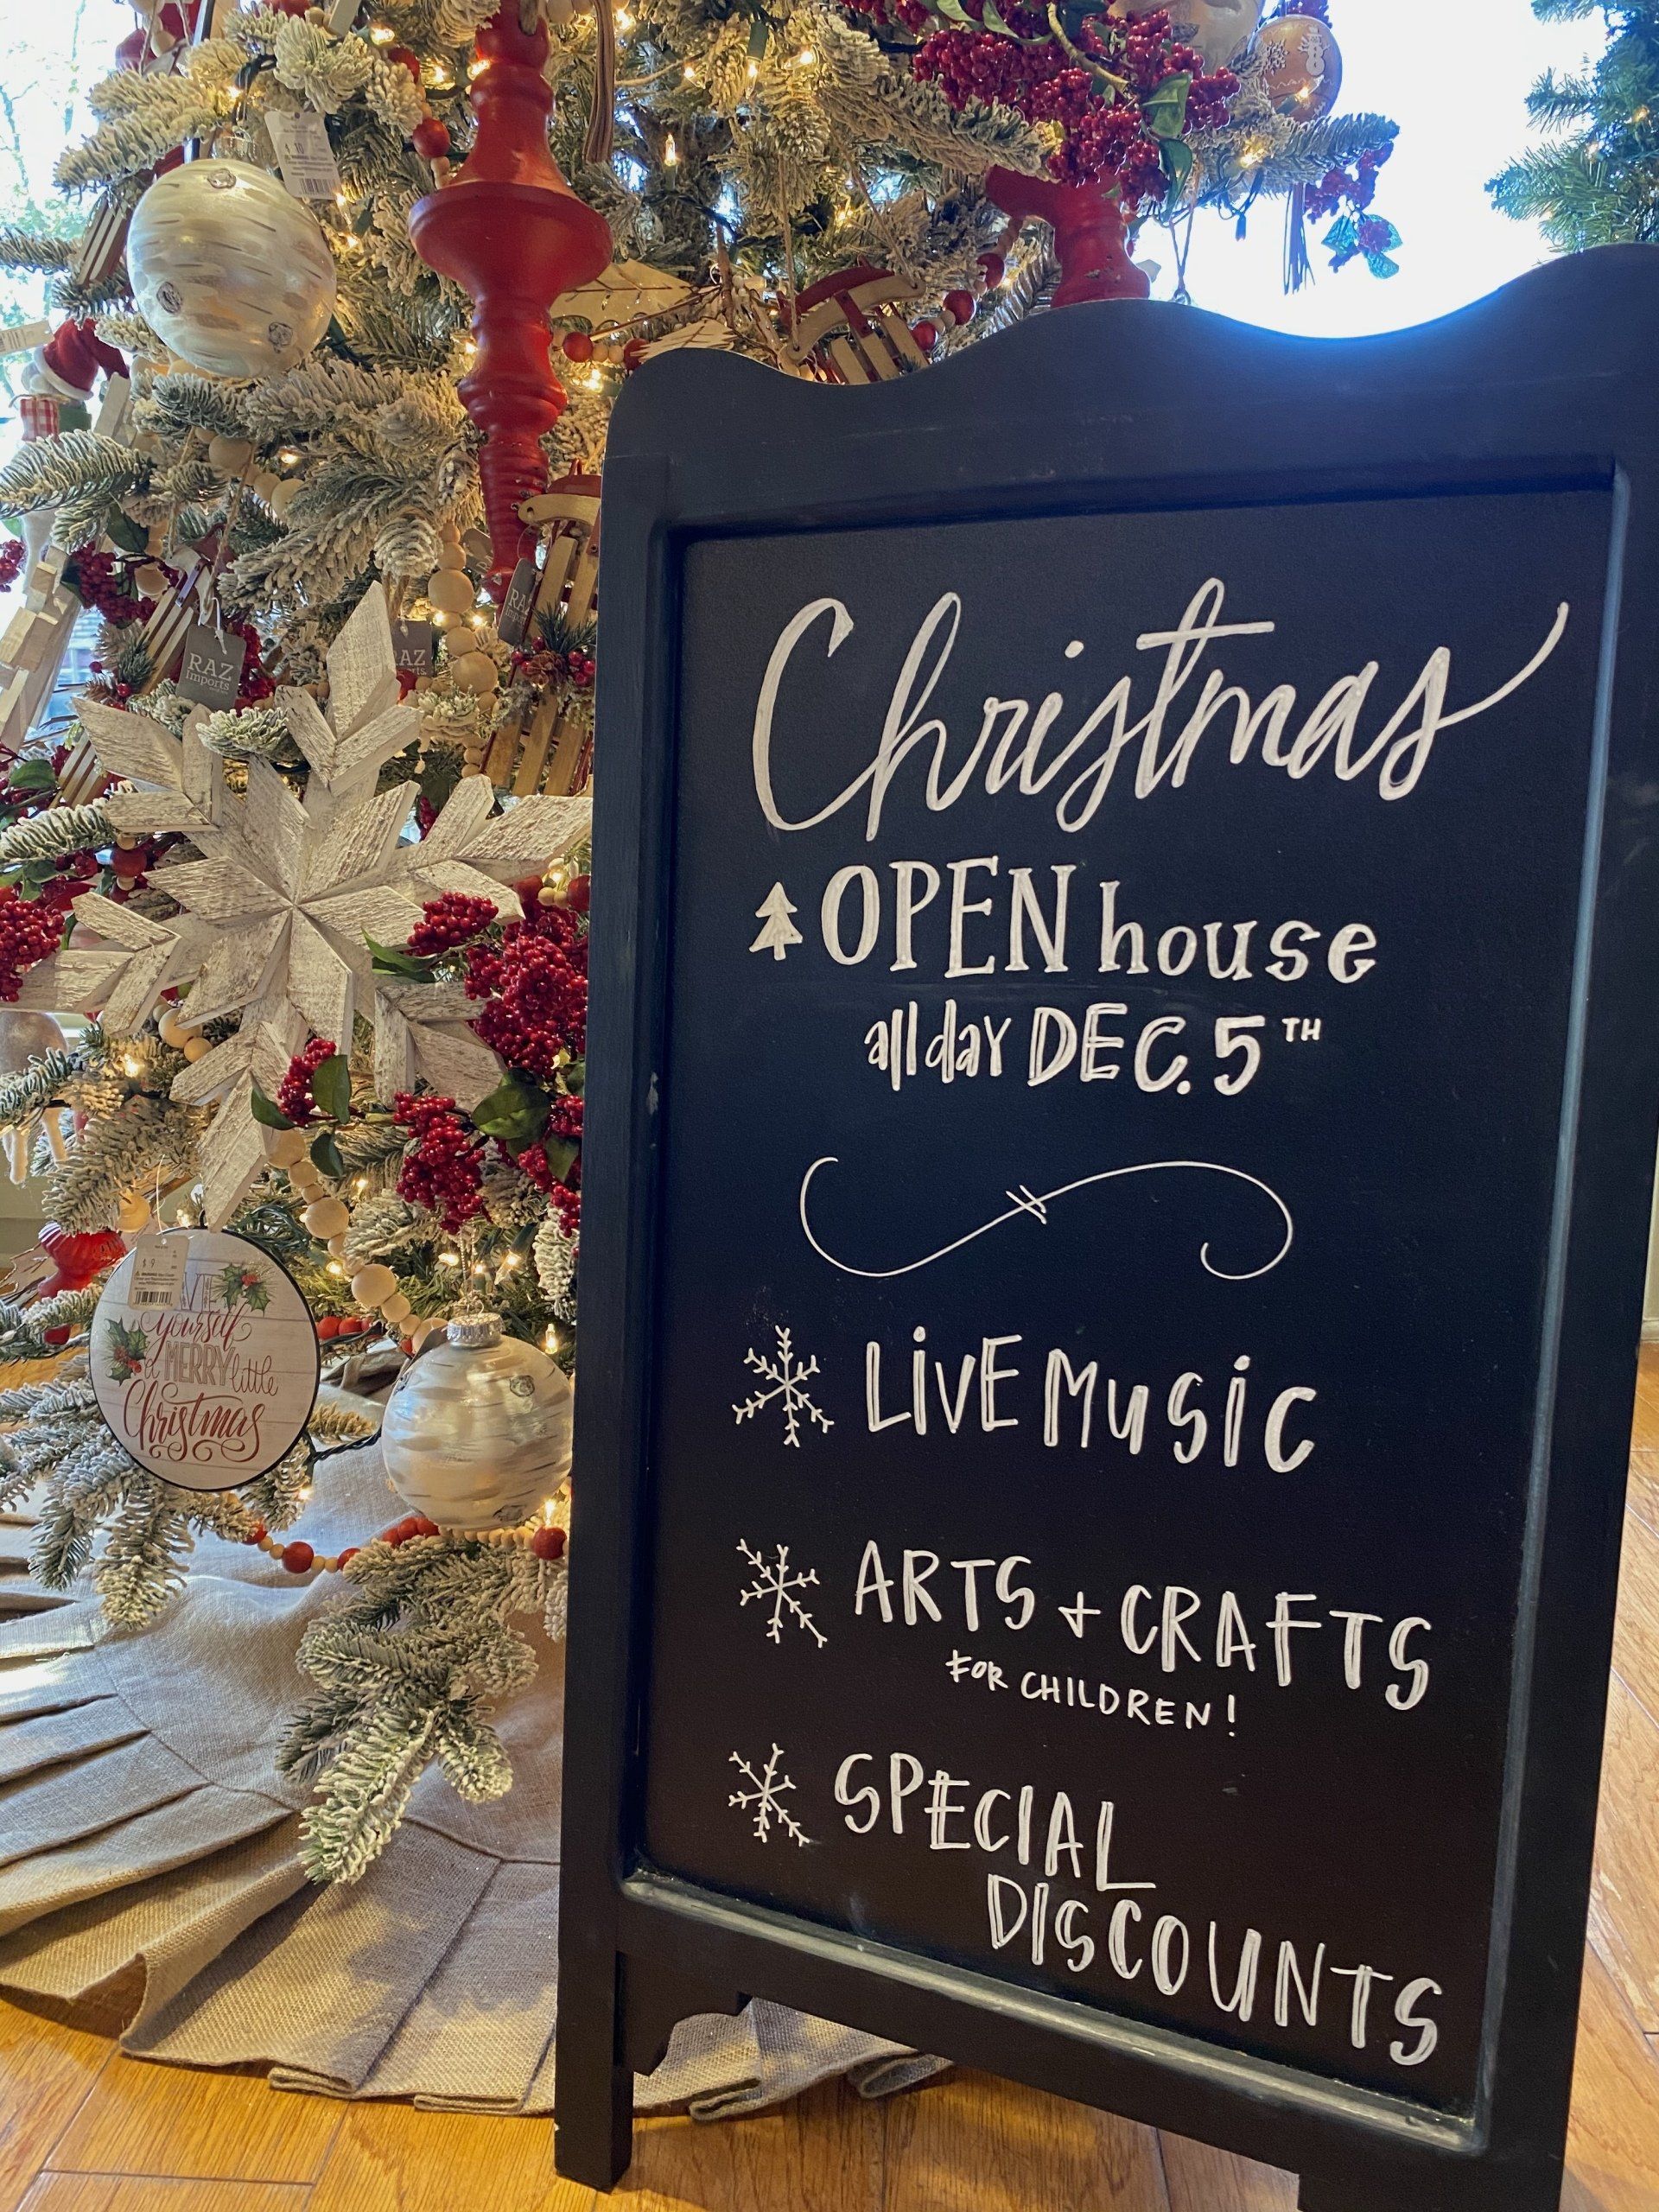 Christmas
OPEN house
all day DEC. 5TH
LiVE MUSiC
ARTS + CRAFTS
FOR CHILDREN!
SPECIAL
DISCOUNTS
RAZ
imports
RAZ
yourself
a MERRY little
Christmas
$ 9